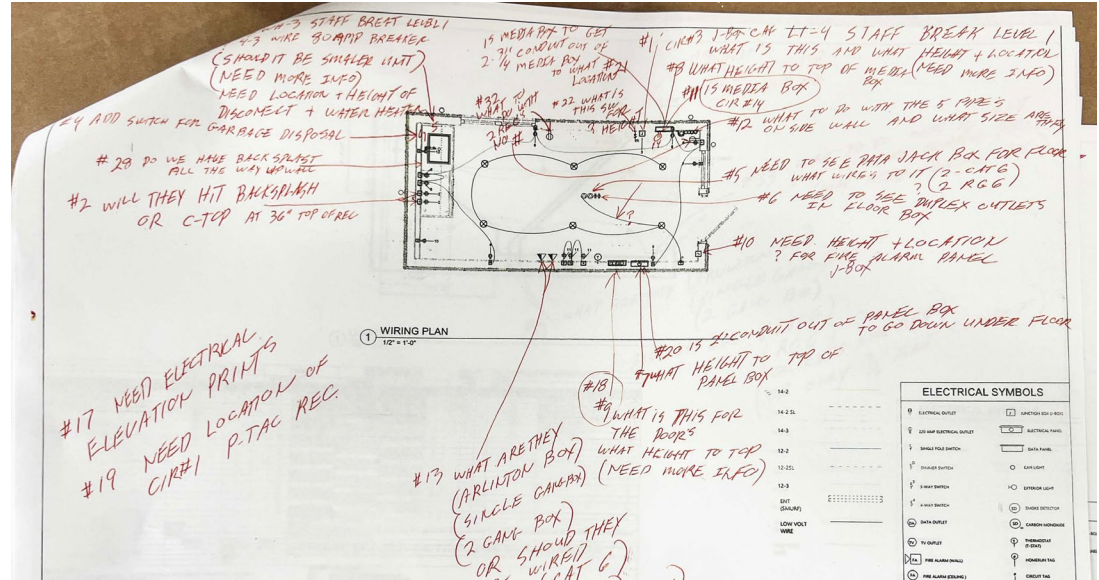 -3 STAFF BREAT LEVEL 1
-3 WIRE 30AMP BREAKER
(SHOULD IT BE SMALER UNIT)
(NEED MORE INFO)
NEED LOCATION + HEIGHT OF
DISCONECT + WATER HEATER
#4 ADD SWITCH FOR GARBAGE DISPOSAL
#29 DO WE HAVE BACK SPLAST
ALL THE WAY UP WALL
#2 WILL THEY HIT BACKSPLASH
OR C-TOP AT 36" TOP OF REC
15 MEDIA BOX TO GET
2- 3/4 CONDUIT OUT OF
MEDIA BOX
TO WHAT #21
LOCATION
#32
WHAT TO
DO WITH
#22 WHAT IS
THIS SW
FOR
? HEIGHT
#1 CIR#3 J-BOX CAF LT=4 STAFF BREAK LEVEL 1
WHAT IS THIS AND WHAT HEIGHT + LOCATION
(NEED MORE INFO)
#8 WHAT HEIGHT TO TOP OF MEDIA BOX
#11 15 MEDIA BOX
CIR #14
#12 WHAT TO DO WITH THE 5 PIPE'S
ON SIDE WALL AND WHAT SIZE ARE THEY
#5 NEED TO SEE DATA JACK BOX FOR FLOOR
WHAT WIRE'S TO IT (2-CAT6)
? (2 RG6)
#6 NEED TO SEE DUPLEX OUTLETS
IN FLOOR BOX
#10 NEED HEIGHT + LOCATION
? FOR FIRE ALARM PANEL
J-BOX
1 WIRING PLAN
1/2" = 1'-0"
#20 IS 2" CONDUIT OUT OF PANEL BOX
TO GO DOWN UNDER FLOOR
#7 WHAT HEIGHT TO TOP OF
PANEL BOX
#17 NEED ELECTRICAL
ELEVATION PRINTS
#19 NEED LOCATION OF
CIR#1 P.TAC REC.
#18
#9 WHAT IS THIS FOR
THE DOOR'S
WHAT HEIGHT TO TOP
(NEED MORE INFO)
#13 WHAT ARE THEY
(ARLINTON BOX)
(SINGLE GANG BOX)
(2 GANG BOX)
OR SHOULD THEY
BE WIRED
CAT 6)
14-2
14-2 SL
14-3
12-2
12-2SL
12-3
ENT
(SMURF)
LOW VOLT
WIRE
ELECTRICAL SYMBOLS
ELECTRICAL OUTLET
JUNCTION BOX (J-BOX)
220 AMP ELECTRICAL OUTLET
ELECTRICAL PANEL
SINGLE POLE SWITCH
DATA PANEL
DIMMER SWITCH
CAN LIGHT
3-WAY SWITCH
EXTERIOR LIGHT
4-WAY SWITCH
SD SMOKE DETECTOR
DATA OUTLET
CARBON MONOXIDE
TV TV OUTLET
THERMOSTAT
(T-STAT)
FA FIRE ALARM (WALL)
HOMERUN TAG
FA FIRE ALARM (CEILING)
CIRCUIT TAG